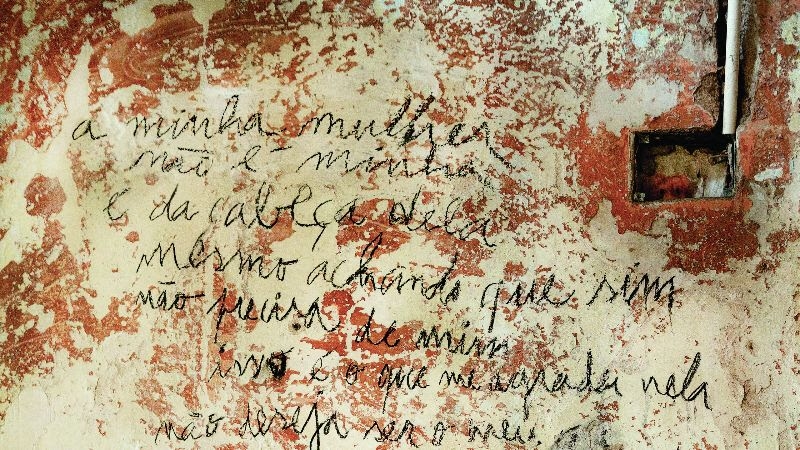 a minha mulher
não é minha
é da cabeça dela
mesmo achando que sim
não precisa de mim
isso é o que me agrada nela
não deseja ser o meu